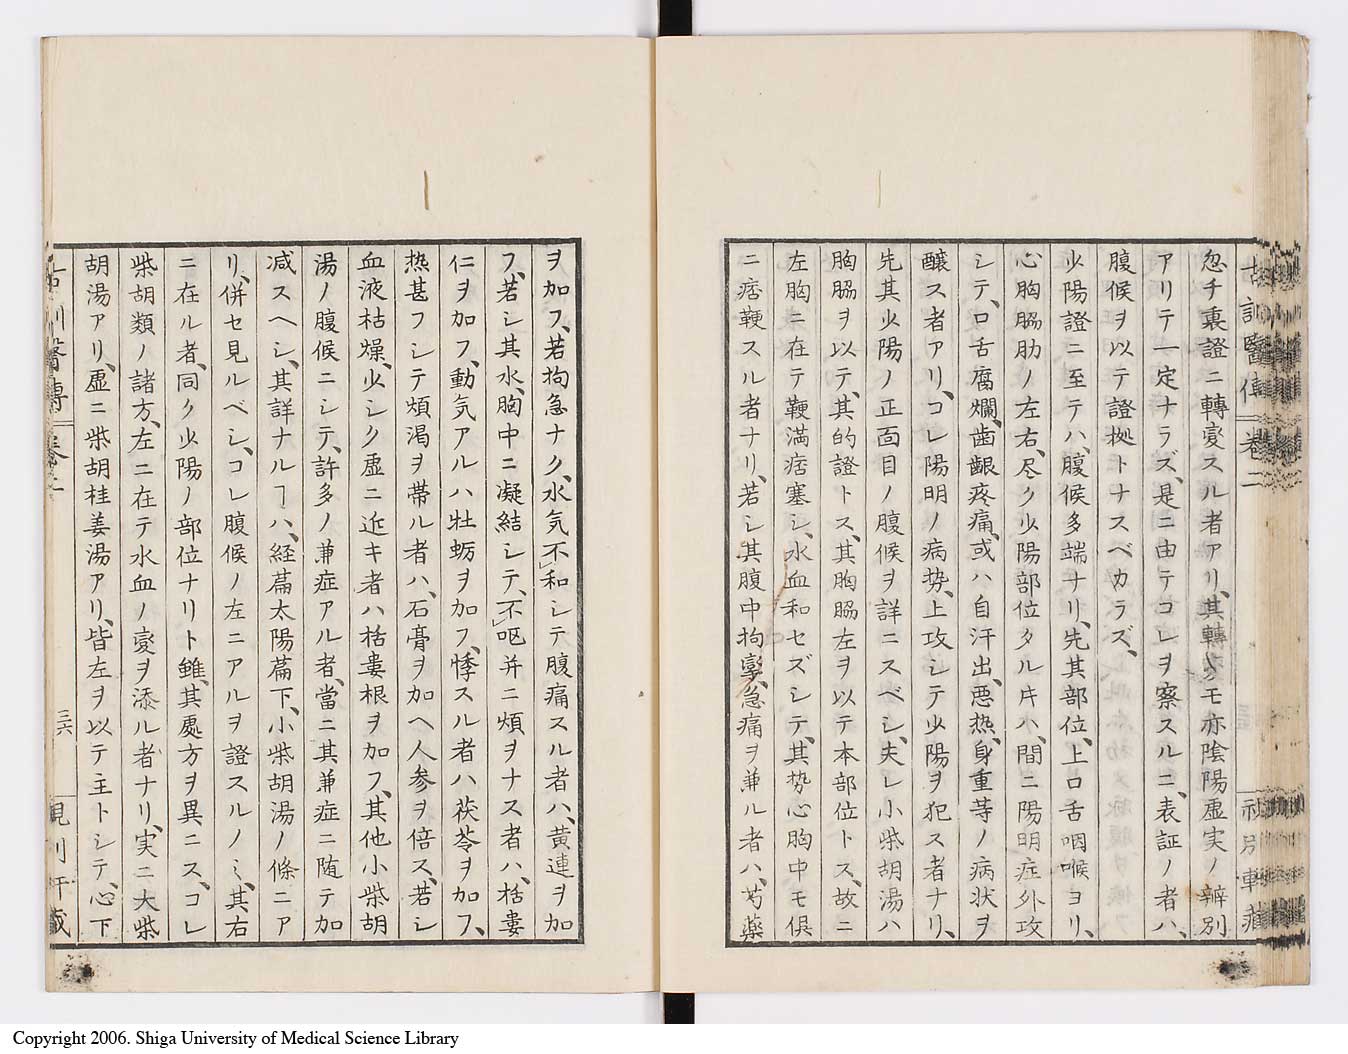 忽チ裏證ニ轉変スル者アリ、其轉タモ亦陰陽虚実ノ辨別
アリテ一定ナラズ、是ニ由テコレヲ察スルニ、表証ノ者ハ、
腹候ヲ以テ證拠トナスベカラズ、
少陽證ニ至テハ、腹候多端ナリ、先其部位、上口舌咽喉ヨリ、
心胸脇肋ノ左右、尽ク少陽部位タル𪜈、間ニ陽明症外攻
シテ、口舌腐爛、歯齦疼痛、或ハ自汗出、悪熱、身重等ノ病状ヲ
醸ス者アリ、コレ陽明ノ病势、上攻シテ少陽ヲ犯ス者ナリ、
先其少陽ノ正面目ノ腹候ヲ詳ニスベシ、夫レ小柴胡湯ハ
胸脇ヲ以テ、其的證トス、其胸脇左ヲ以テ本部位トス、故ニ
左胸ニ在テ鞕満痞塞シ、水血和セズシテ、其势心胸中モ倶
ニ痞鞕スル者ナリ、若シ其腹中拘攣、急痛ヲ兼ル者ハ、芍薬
古訓醫傳 巻二
ヲ加フ、若拘急ナク、水気不和シテ腹痛スル者ハ、黄連ヲ加
フ、若シ其水、胸中ニ凝結シテ、不呕并ニ煩ヲナス者ハ、栝蔞
仁ヲ加フ、動気アルハ牡蛎ヲ加フ、悸スル者ハ、茯苓ヲ加フ、
热甚フシテ煩渇ヲ帯ル者ハ、石膏ヲ加ヘ人参ヲ倍ス、若シ
血液枯燥、少シク虚ニ近キ者ハ栝蔞根ヲ加フ、其他小柴胡
湯ノ腹候ニシテ、許多ノ兼症アル者、當ニ其兼症ニ随テ加
减スヘシ、其詳ナルヿハ、経篇太陽篇下、小柴胡湯ノ條ニア
リ、併セ見ルベシ、コレ腹候ノ左ニアルヲ證スルノミ、其右
ニ在ル者、同ク少陽ノ部位ナリト雖、其處方ヲ異ニス、コレ
柴胡類ノ諸方、左ニ在テ水血ノ変ヲ添ル者ナリ、実ニ大柴
胡湯アリ、虚ニ柴胡桂姜湯アリ、皆左ヲ以テ主トシテ、心下
三六
Copyright 2006. Shiga University of Medical Science Library